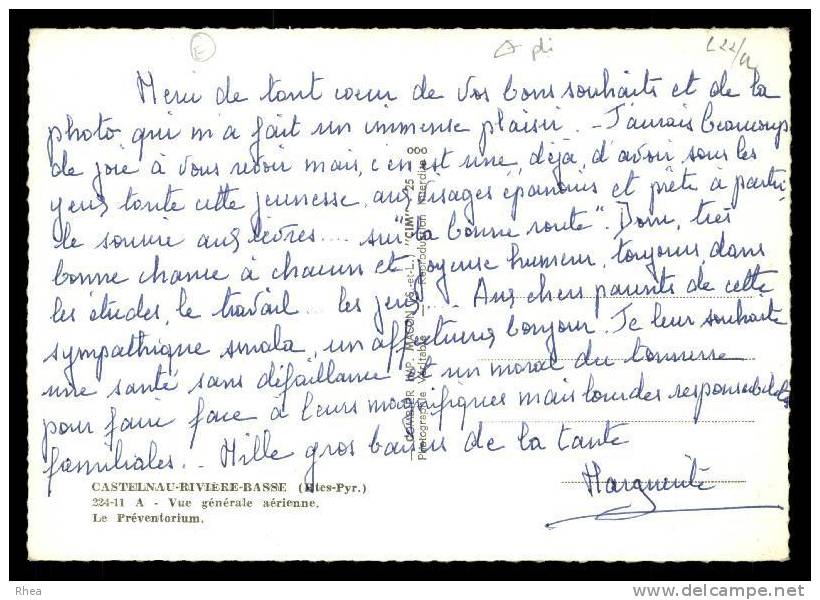 E
A pli
Merci de tout coeur de vos bons souhaits et de la
photo qui m'a fait un immense plaisir. - J'aurais beaucoup
de joie à vous revoir mais, c'en est une, déjà, d'avoir sous les
yeux toute cette jeunesse, aux visages épanouis et prête à partir,
le sourire aux lèvres.... sur "la bonne route". Donc, très
bonne chance à chacun et joyeuse humeur, toujours, dans
les études, le travail... les jeux... Aux chers parents de cette
sympathique smala, un affectueux bonjour. Je leur souhaite
une santé sans défaillance et un moral du tonnerre
pour faire face à leurs magnifiques mais lourdes responsabilités
familiales. - Mille gros baisers de la tante
Marguerite
CASTELNAU-RIVIÈRE-BASSE (Htes-Pyr.)
224-11 A - Vue générale aérienne.
Le Préventorium.
COMBIER IMP. MACON (S.-et-L.) "CIM" 25 000
Photographie Véritable - Reproduction Interdite
Rhea
delcampe.net